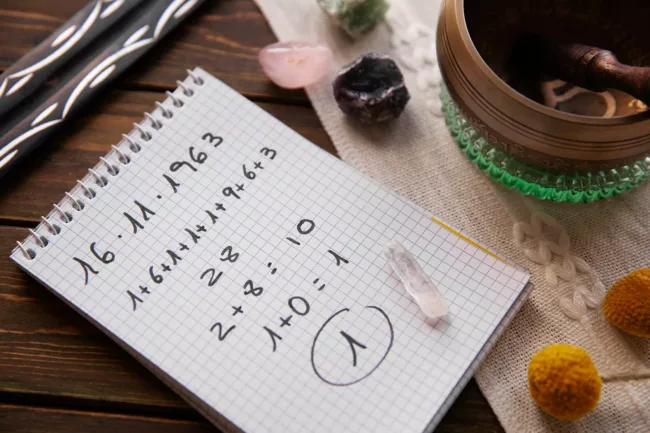 16.11.1963
1+6+1+1+1+9+6+3
28
2+8=10
1+0=1
1